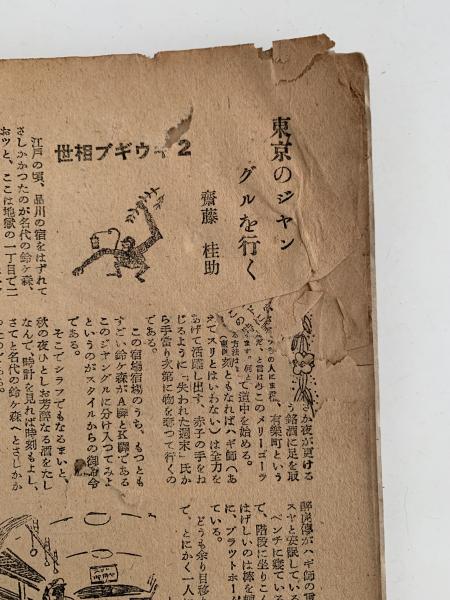 東京のジャン
グルを行く
齋藤 桂助
世相ブギウギ2
江戸の頃、品川の宿をはずれて
さしかかつたのが名代の鈴ヶ森、
おツと、ここは地獄の一丁目で二
さか夜が更ける
う銘酒に足を取
有楽町という
このメリーゴーラ
て道中を始める。
刻ともなればハギ師（あ
えてスリとはいわない）は全力を
あげて活躍し出す、赤子の手をね
じるように「失われた週末」氏か
ら手當り次第に物を奪つて行くの
である。
この宿場宿場のうち、もつとも
すごい鈴ヶ森がA驛とK驛である
このジャングルに分け入つてみよ
というのがスタイルからの御命令
である。
そこでシラフでもなるまいと、
秋の夜ひとしお芳醇なる酒をたし
なんで、時計を見れば時刻もよし、
さてと名代の鈴ヶ森へとさしかか
ハギ師の
スヤと安眠している
ベンチに寝ている
で、階段に坐りこん
はげしいのは棒を
に、プラットホー
ている。
どうも余り目移
て、とにかく一人